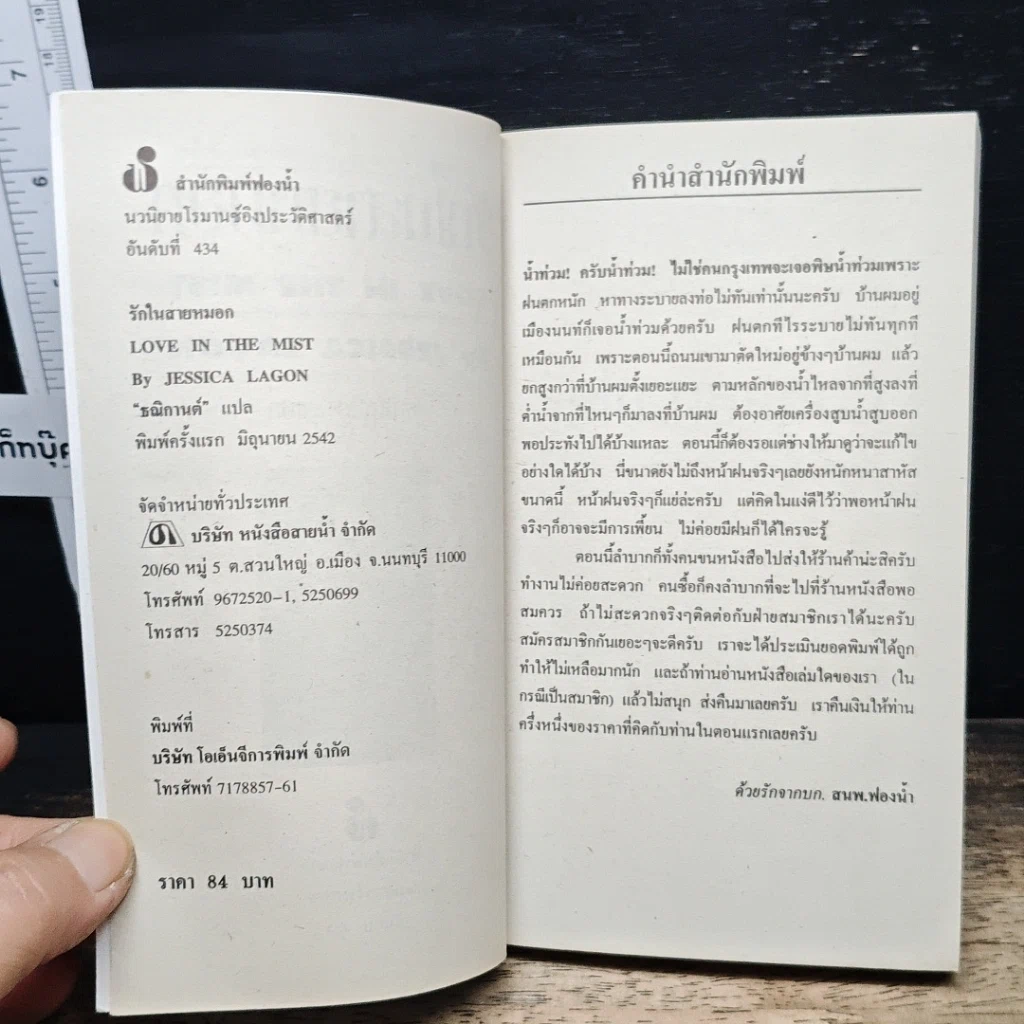 สำนักพิมพ์ฟองน้ำ
นวนิยายโรมานซ์อิงประวัติศาสตร์
อันดับที่ 434
รักในสายหมอก
LOVE IN THE MIST
By JESSICA LAGON
"ธณิกานต์" แปล
พิมพ์ครั้งแรก มิถุนายน 2542
จัดจำหน่ายทั่วประเทศ
บริษัท หนังสือสายน้ำ จำกัด
20/60 หมู่ 5 ต.สวนใหญ่ อ.เมือง จ.นนทบุรี 11000
โทรศัพท์ 9672520-1, 5250699
โทรสาร 5250374
พิมพ์ที่
บริษัท โอเอ็นจีการพิมพ์ จำกัด
โทรศัพท์ 7178857-61
ราคา 84 บาท
คำนำสำนักพิมพ์
น้ำท่วม! ครับน้ำท่วม! ไม่ใช่คนกรุงเทพจะเจอพิษน้ำท่วมเพราะ
ฝนตกหนัก หาทางระบายลงท่อไม่ทันเท่านั้นนะครับ บ้านผมอยู่
เมืองนนท์ก็เจอน้ำท่วมด้วยครับ ฝนตกทีไรระบายไม่ทันทุกที
เหมือนกัน เพราะตอนนี้ถนนเขามาตัดใหม่อยู่ข้างๆบ้านผม แล้ว
ยกสูงกว่าที่บ้านผมตั้งเยอะแยะ ตามหลักของน้ำไหลจากที่สูงลงที่
ต่ำน้ำจากที่ไหนๆก็มาลงที่บ้านผม ต้องอาศัยเครื่องสูบน้ำสูบออก
พอประทังไปได้บ้างแหละ ตอนนี้ก็ต้องรอแต่ช่างให้มาดูว่าจะแก้ไข
อย่างใดได้บ้าง นี่ขนาดยังไม่ถึงหน้าฝนจริงๆเลยยังหนักหนาสาหัส
ขนาดนี้ หน้าฝนจริงๆก็แย่ล่ะครับ แต่คิดในแง่ดีไว้ว่าพอหน้าฝน
จริงๆก็อาจจะมีการเพี้ยน ไม่ค่อยมีฝนก็ได้ใครจะรู้
ตอนนี้ลำบากก็ทั้งคนขนหนังสือไปส่งให้ร้านค้าน่ะสิครับ
ทำงานไม่ค่อยสะดวก คนซื้อก็คงลำบากที่จะไปที่ร้านหนังสือพอ
สมควร ถ้าไม่สะดวกจริงๆติดต่อกับฝ่ายสมาชิกเราได้นะครับ
สมัครสมาชิกกันเยอะๆจะดีครับ เราจะได้ประเมินยอดพิมพ์ได้ถูก
ทำให้ไม่เหลือมากนัก และถ้าท่านอ่านหนังสือเล่มใดของเรา (ใน
กรณีเป็นสมาชิก) แล้วไม่สนุก ส่งคืนมาเลยครับ เราคืนเงินให้ท่าน
ครึ่งหนึ่งของราคาที่คิดกับท่านในตอนแรกเลยครับ
ด้วยรักจากบก. สนพ.ฟองน้ำ
7
6
19
18